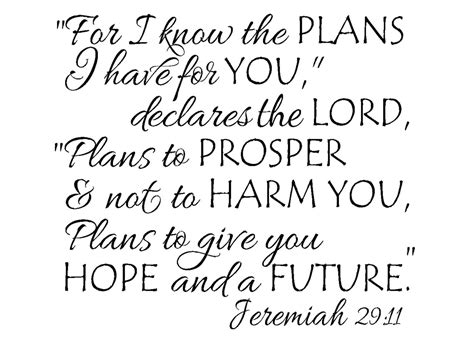 "For I know the PLANS
I have for YOU,"
declares the LORD,
"Plans to PROSPER
& not to HARM YOU,
Plans to give you
HOPE and a FUTURE."
Jeremiah 29:11